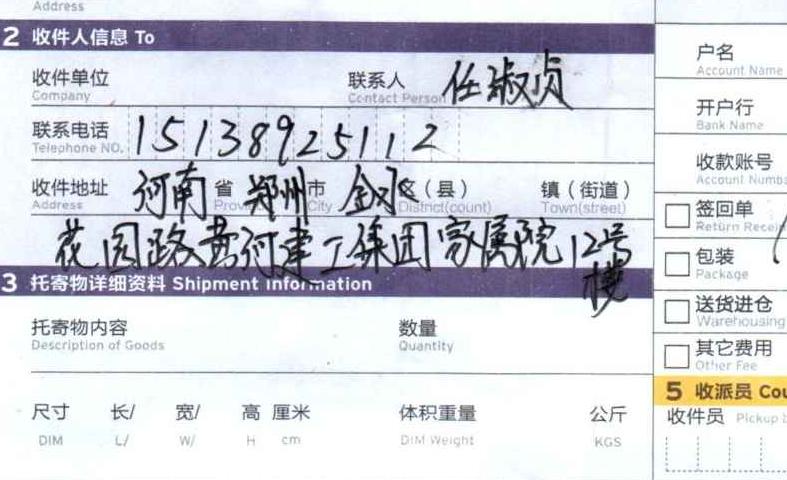 Address
2 收件人信息 To
收件单位
Company
联系人 任淑贞
Contact Person
联系电话 15138925112
Telephone NO.
收件地址 河南 省 郑州 市 金水 区（县） 镇（街道）
Address Province City District(count) Town(street)
花园路黄河建工集团家属院12号
楼
3 托寄物详细资料 Shipment Information
托寄物内容 数量
Description of Goods Quantity
尺寸 长/ 宽/ 高 厘米 体积重量 公斤
DIM L/ W/ H cm DIM Weight KGS
户名
Account Name
开户行
Bank Name
收款账号
Account Numb
签回单
Return Recei
包装
Package
送货进仓
Warehousing
其它费用
Other Fee
5 收派员 Cou
收件员 Pickup